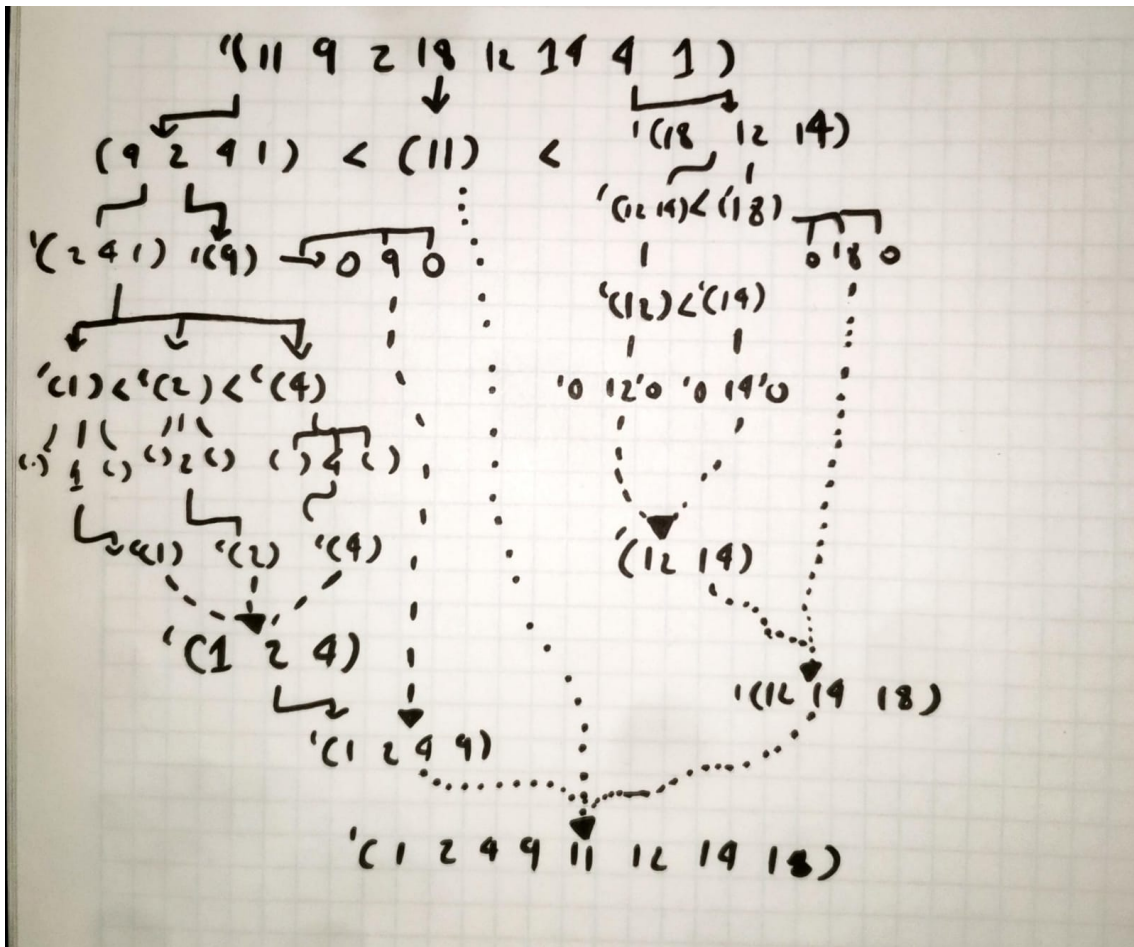 '(11 9 2 18 12 14 4 1)
(9 2 4 1) < (11) < '(18 12 14)
'(12 14) < '(18)
'(2 4 1) '(9) 0 9 0
0 18 0
'(12) < '(14)
'(1) < '(2) < '(4)
'0 12 '0 '0 14 '0
() 1 () () 2 () () 4 ()
'(1) '(2) '(4)
'(12 14)
'(1 2 4)
'(12 14 18)
'(1 2 4 9)
'(1 2 4 9 11 12 14 18)